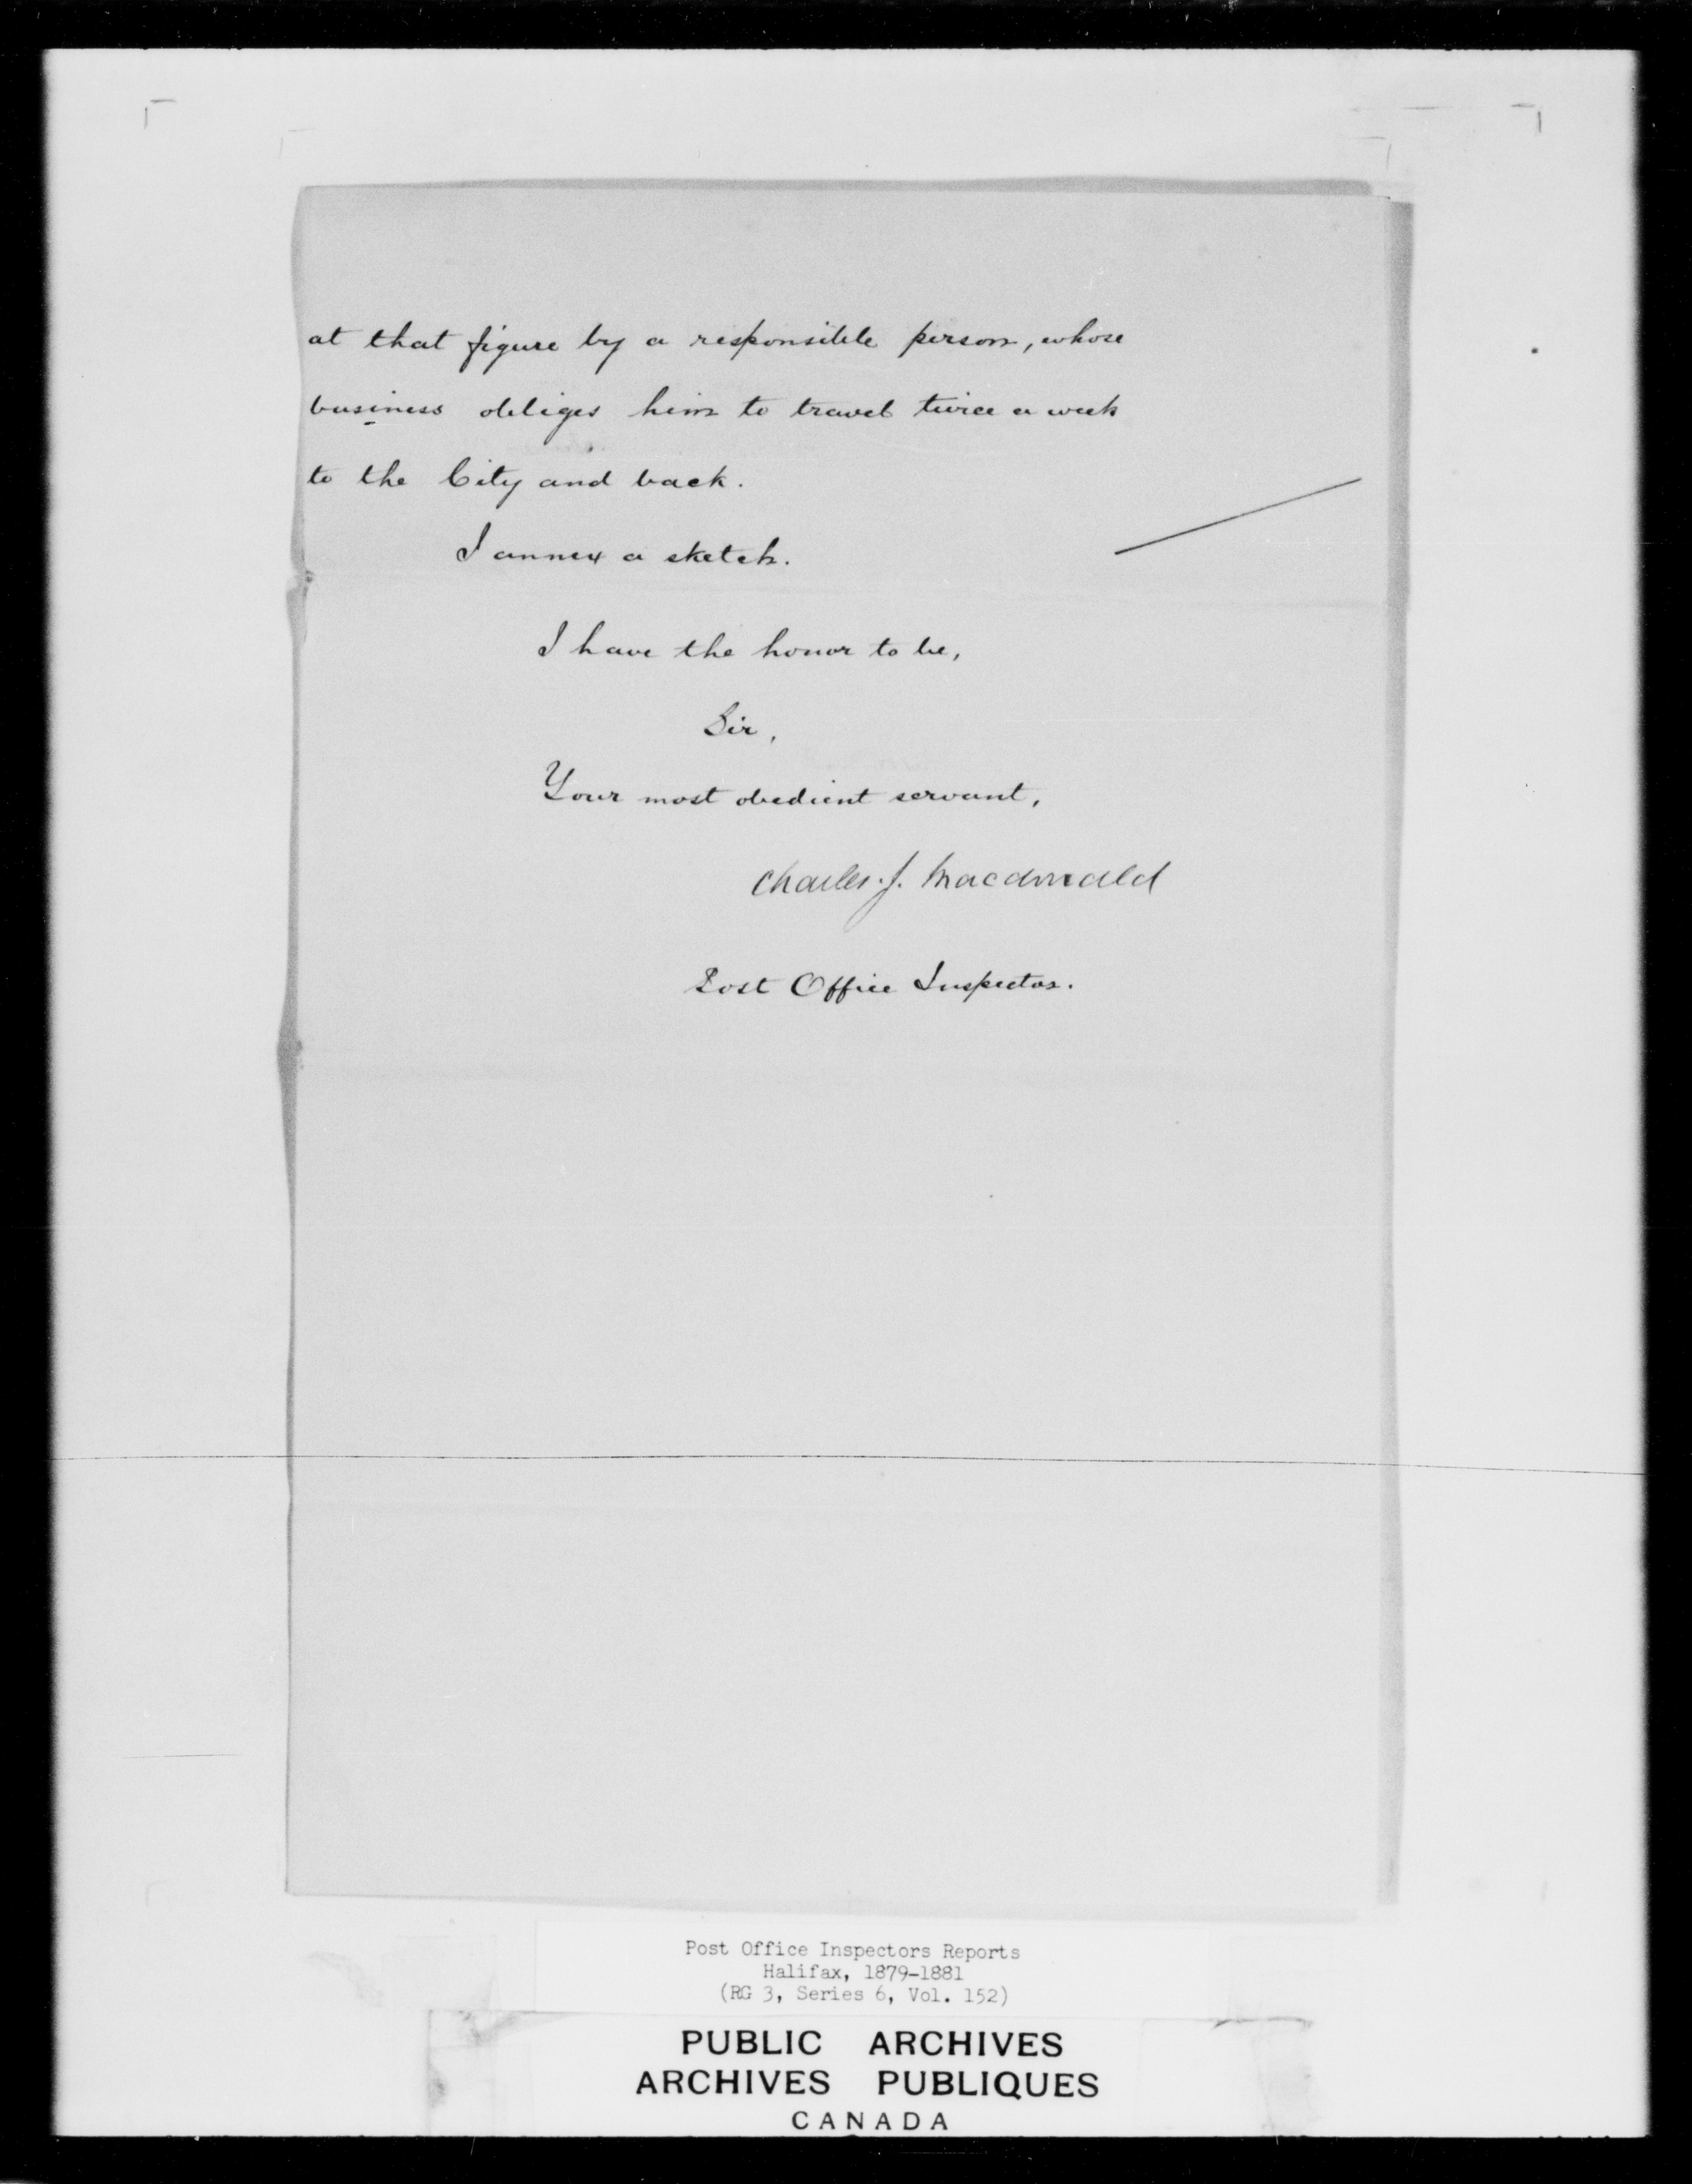 at that figure by a responsible person, whose
business obliges him to travel twice a week
to the City and back.
I annex a sketch.
I have the honor to be,
Sir,
Your most obedient servant,
Charles. J. Macdonald
Post Office Inspector.
Post Office Inspectors Reports
Halifax, 1879-1881
(RG 3, Series 6, Vol. 152)
PUBLIC ARCHIVES
ARCHIVES PUBLIQUES
CANADA